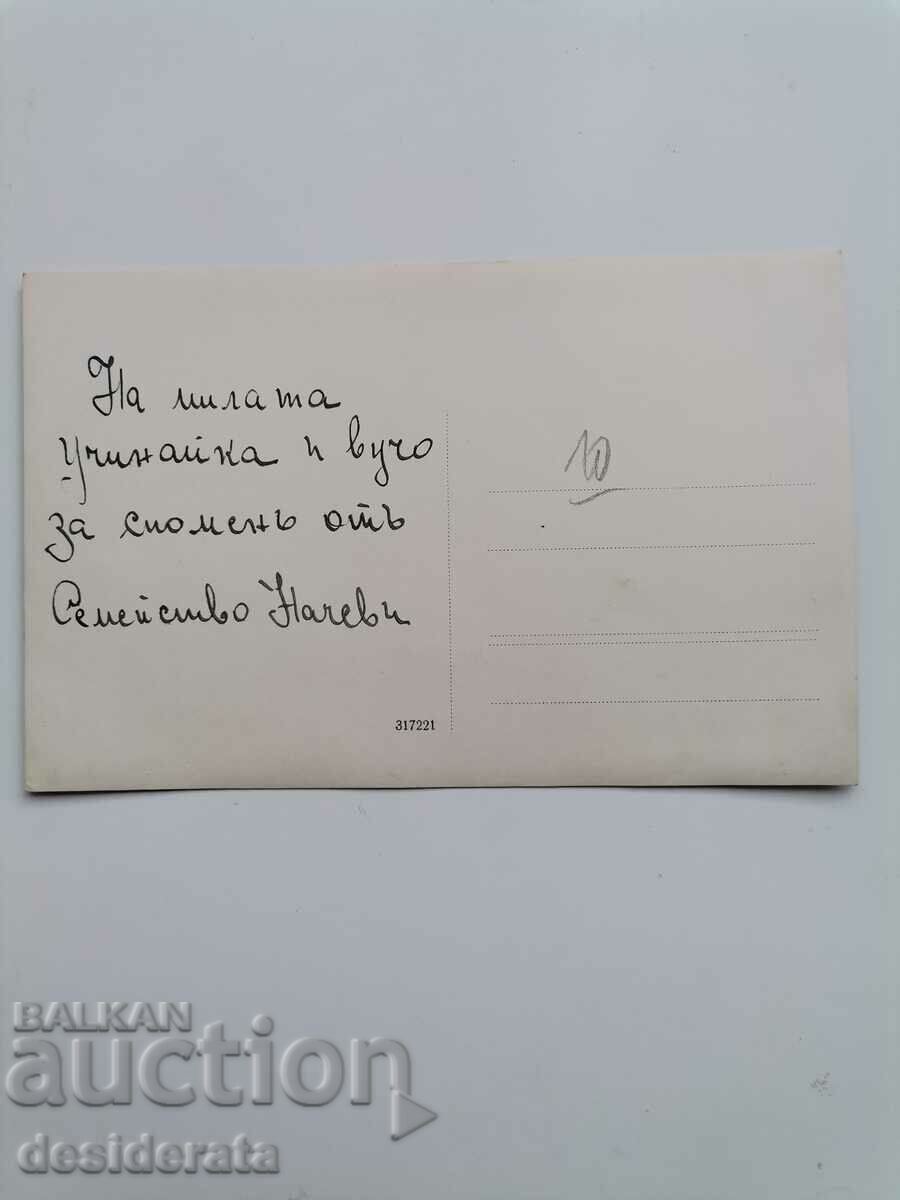 На милата
Учинайка и вучо
за споменъ отъ
Семейство Начеви
10
317221
BALKAN
auction
desiderata